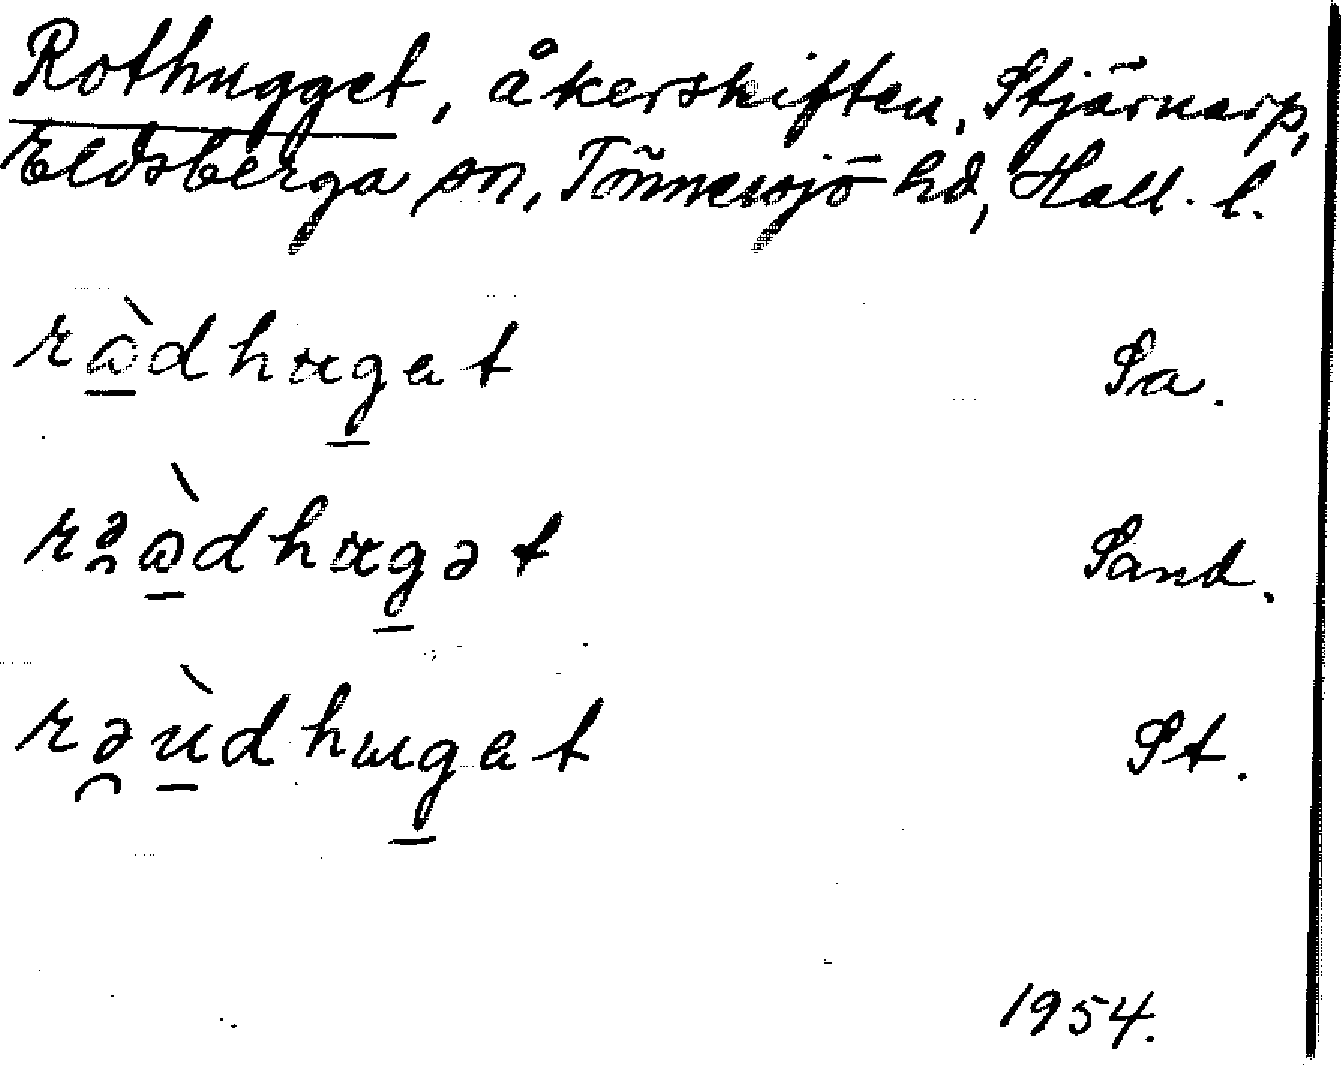 Rothugget, åkerskiften, Stjärnarp,
Eldsberga sn, Tönnersjö hd, Hall. l.
rꭃ̀dhꭒgat Sa.
rəꭃ̀dhꭒgət Sand.
rəùdhꭒgat St.
1954.